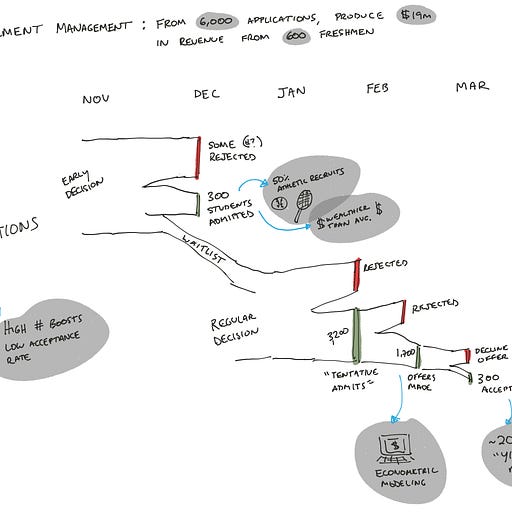 LMENT MANAGEMENT : FROM 6,000 APPLICATIONS, PRODUCE $19M
IN REVENUE FROM 600 FRESHMEN
NOV DEC JAN FEB MAR
SOME (#?)
REJECTED
EARLY
DECISION
300
STUDENTS
ADMITTED
50%
ATHLETIC RECRUITS
$ WEALTHIER $
THAN AVG.
TIONS
WAITLIST
REJECTED
HIGH # BOOSTS
LOW ACCEPTANCE
RATE
REGULAR
DECISION
REJECTED
3,200
1,700
DECLINE
OFFER
"TENTATIVE
ADMITS"
OFFERS
MADE
300
ACCEPT
$
ECONOMETRIC
MODELING
~20
"YI